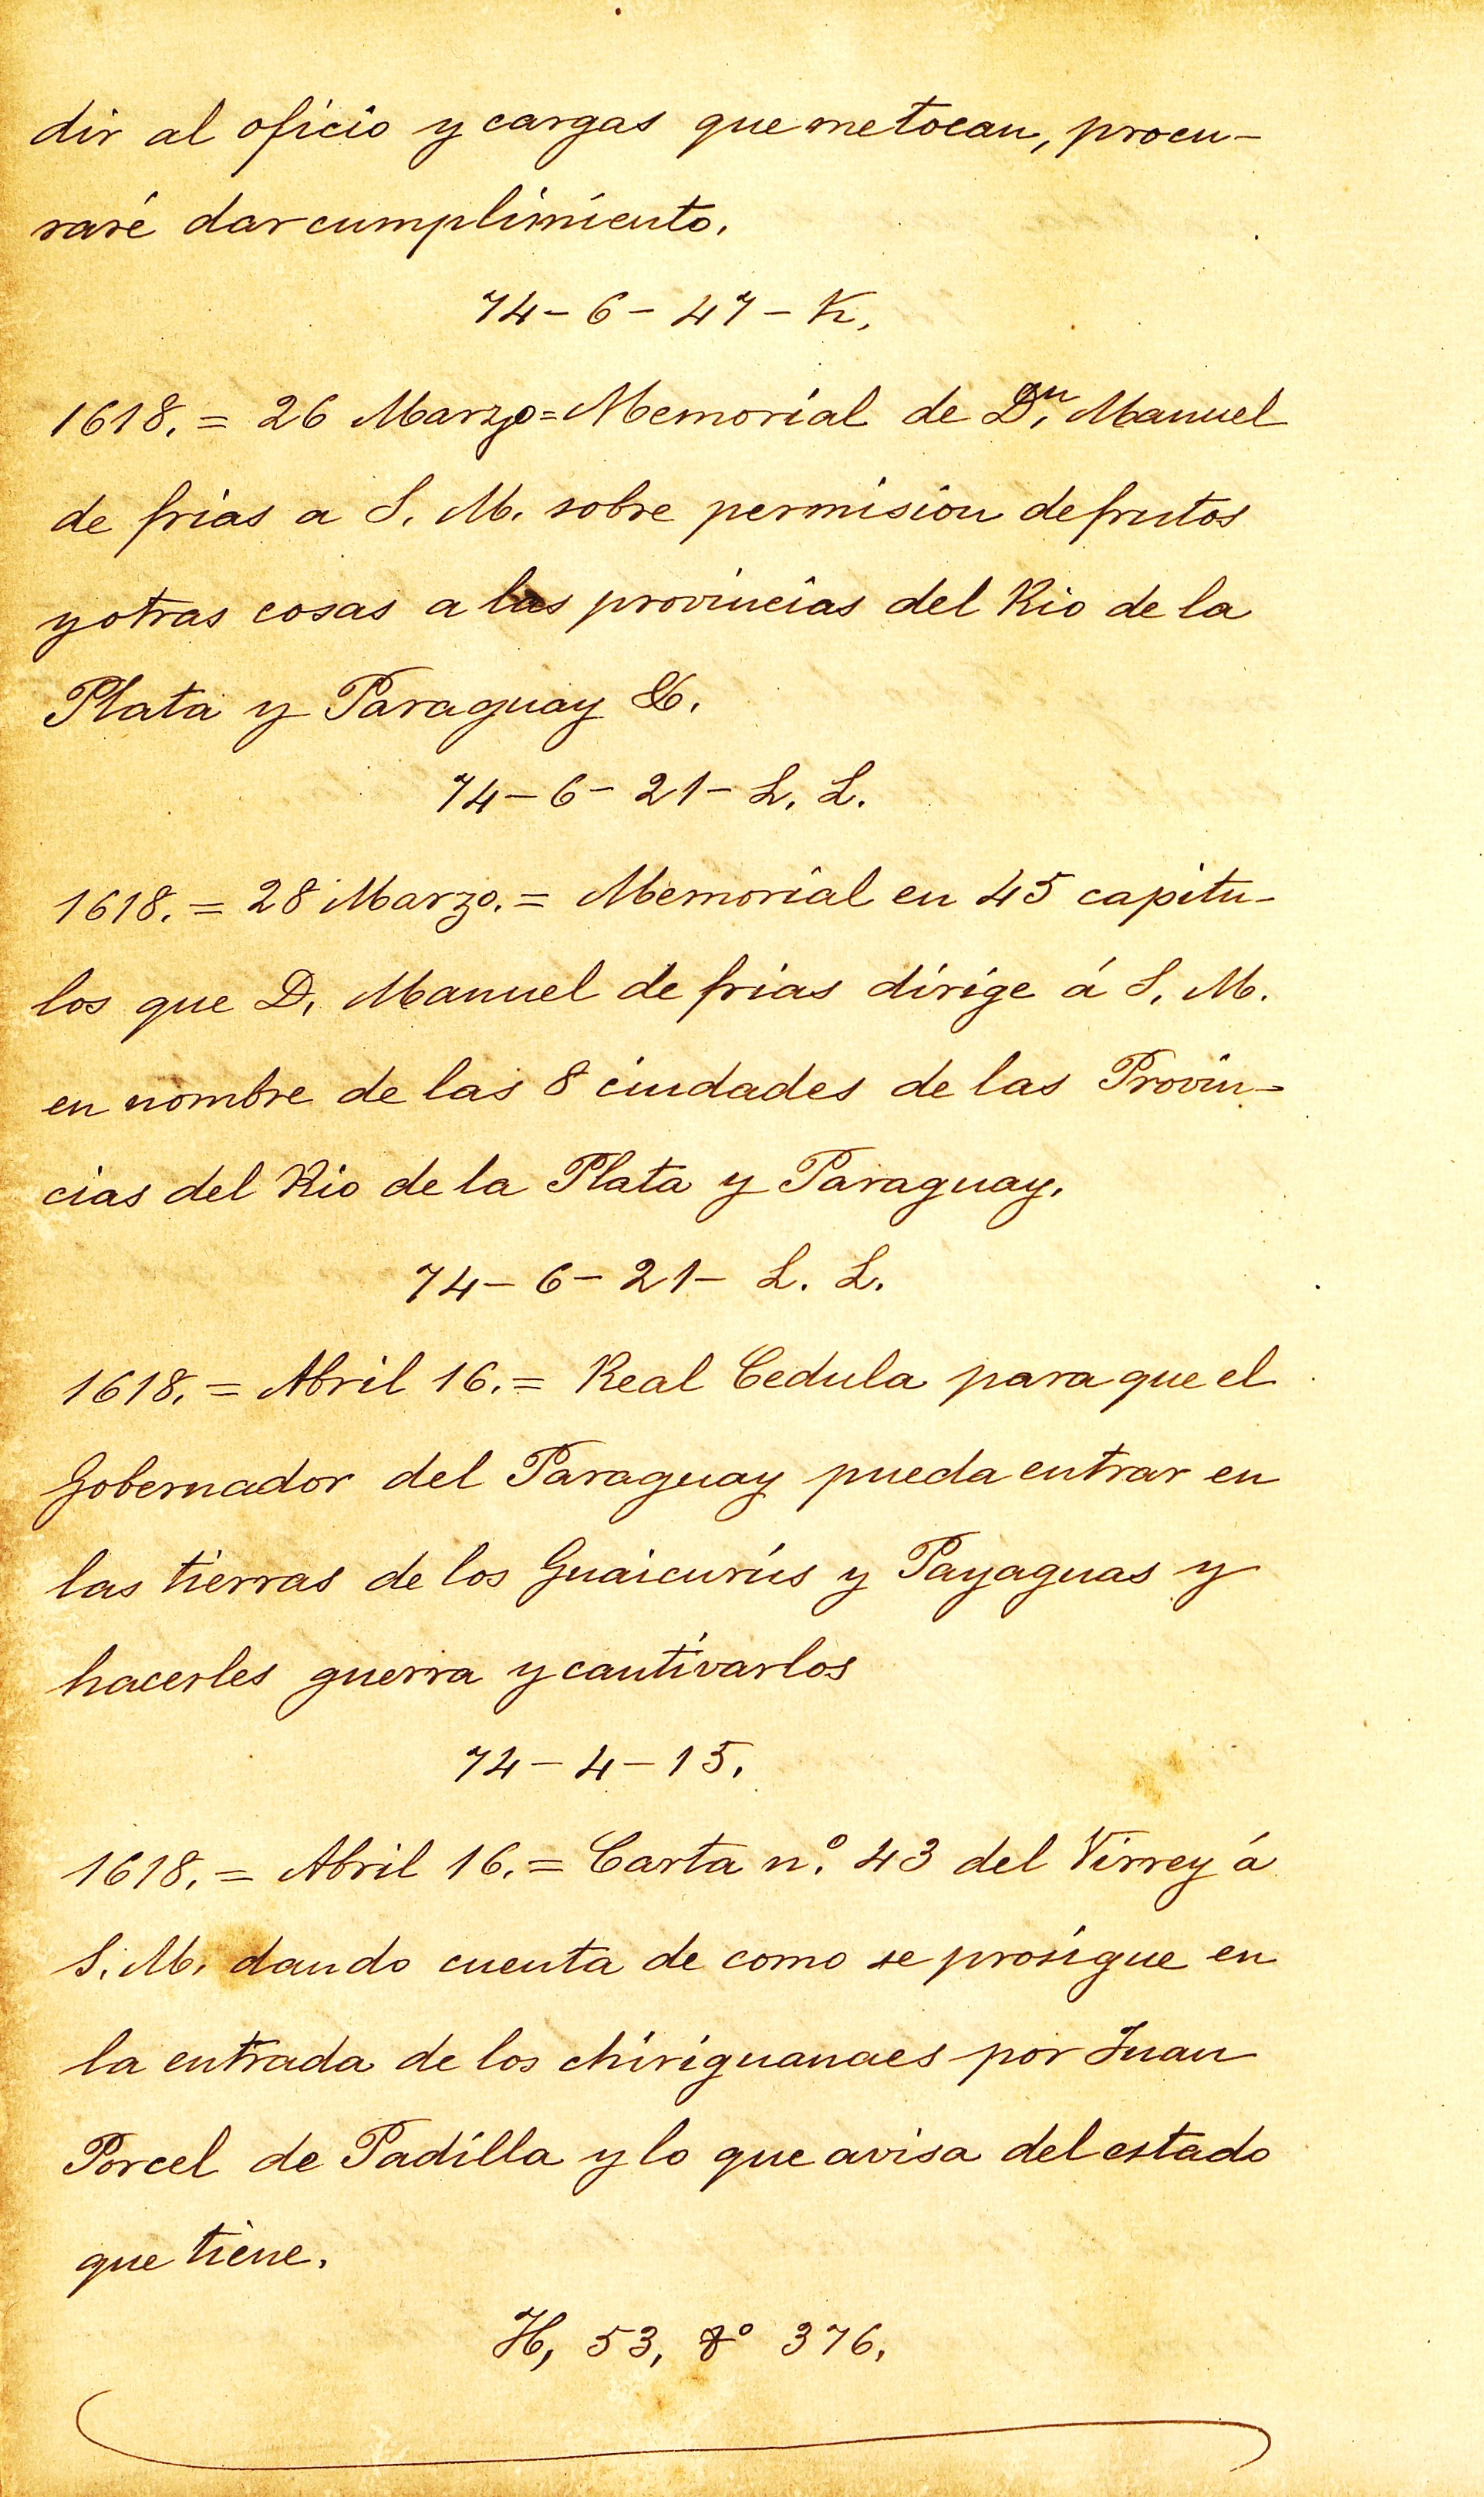 dir al oficio y cargas que me tocan, procu-
raré dar cumplimiento.
74-6-47-K.
1618. = 26 Marzo = Memorial de Dn. Manuel
de frias a S. M. sobre permision de frutos
y otras cosas a las provincias del Rio de la
Plata y Paraguay &.
74-6-21-L. L.
1618. = 28 Marzo. = Memorial en 45 capitu-
los que D. Manuel de frias dirige á S. M.
en nombre de las 8 ciudades de las Provin-
cias del Rio de la Plata y Paraguay.
74-6-21- L. L.
1618. = Abril 16. = Real Cedula para que el
Gobernador del Paraguay pueda entrar en
las tierras de los Guaicurús y Payaguas y
hacerles guerra y cautivarlos
74-4-15.
1618. = Abril 16. = Carta n.º 43 del Virrey á
S. M. dando cuenta de como se prosigue en
la entrada de los chiriguanaes por Juan
Porcel de Padilla y lo que avisa del estado
que tiene.
H, 53, fº 376.